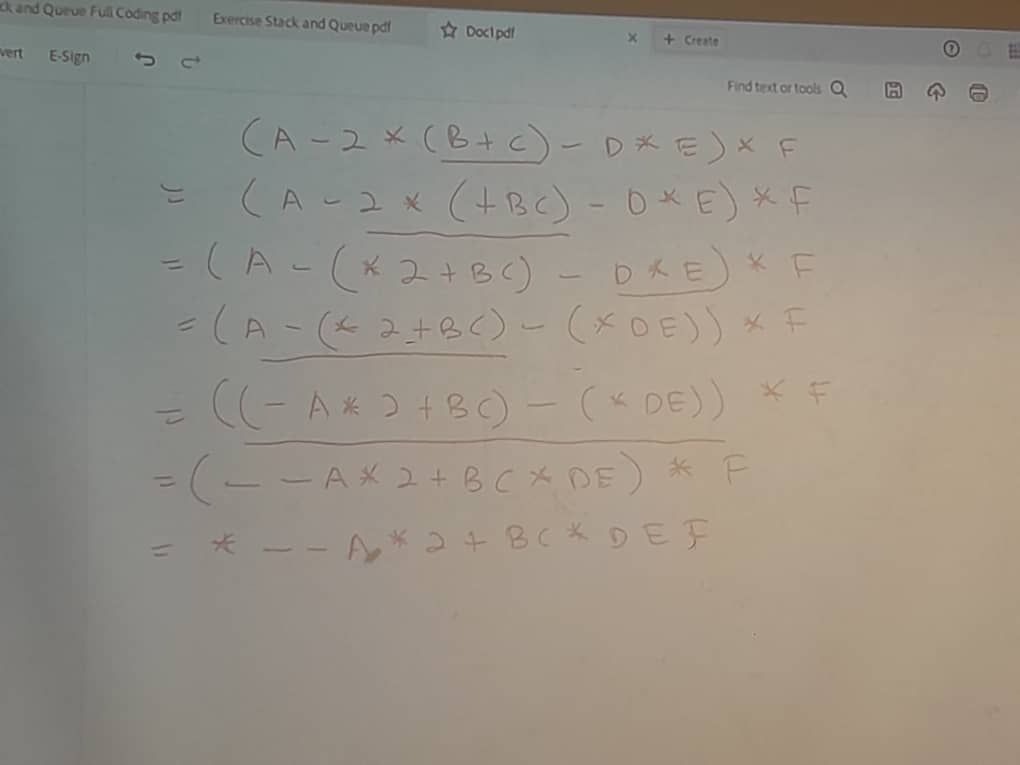 ck and Queue Full Coding.pdf Exercise Stack and Queue.pdf Doc1.pdf × + Create
vert E-Sign
Find text or tools
(A - 2 * (B + C) - D * E) * F
= (A - 2 * (+BC) - D * E) * F
= (A - (* 2 + BC) - D * E) * F
= (A - (* 2 + BC) - (* DE)) * F
= ((- A * 2 + BC) - (* DE)) * F
= (- - A * 2 + BC * DE) * F
= * - - A * 2 + BC * DEF